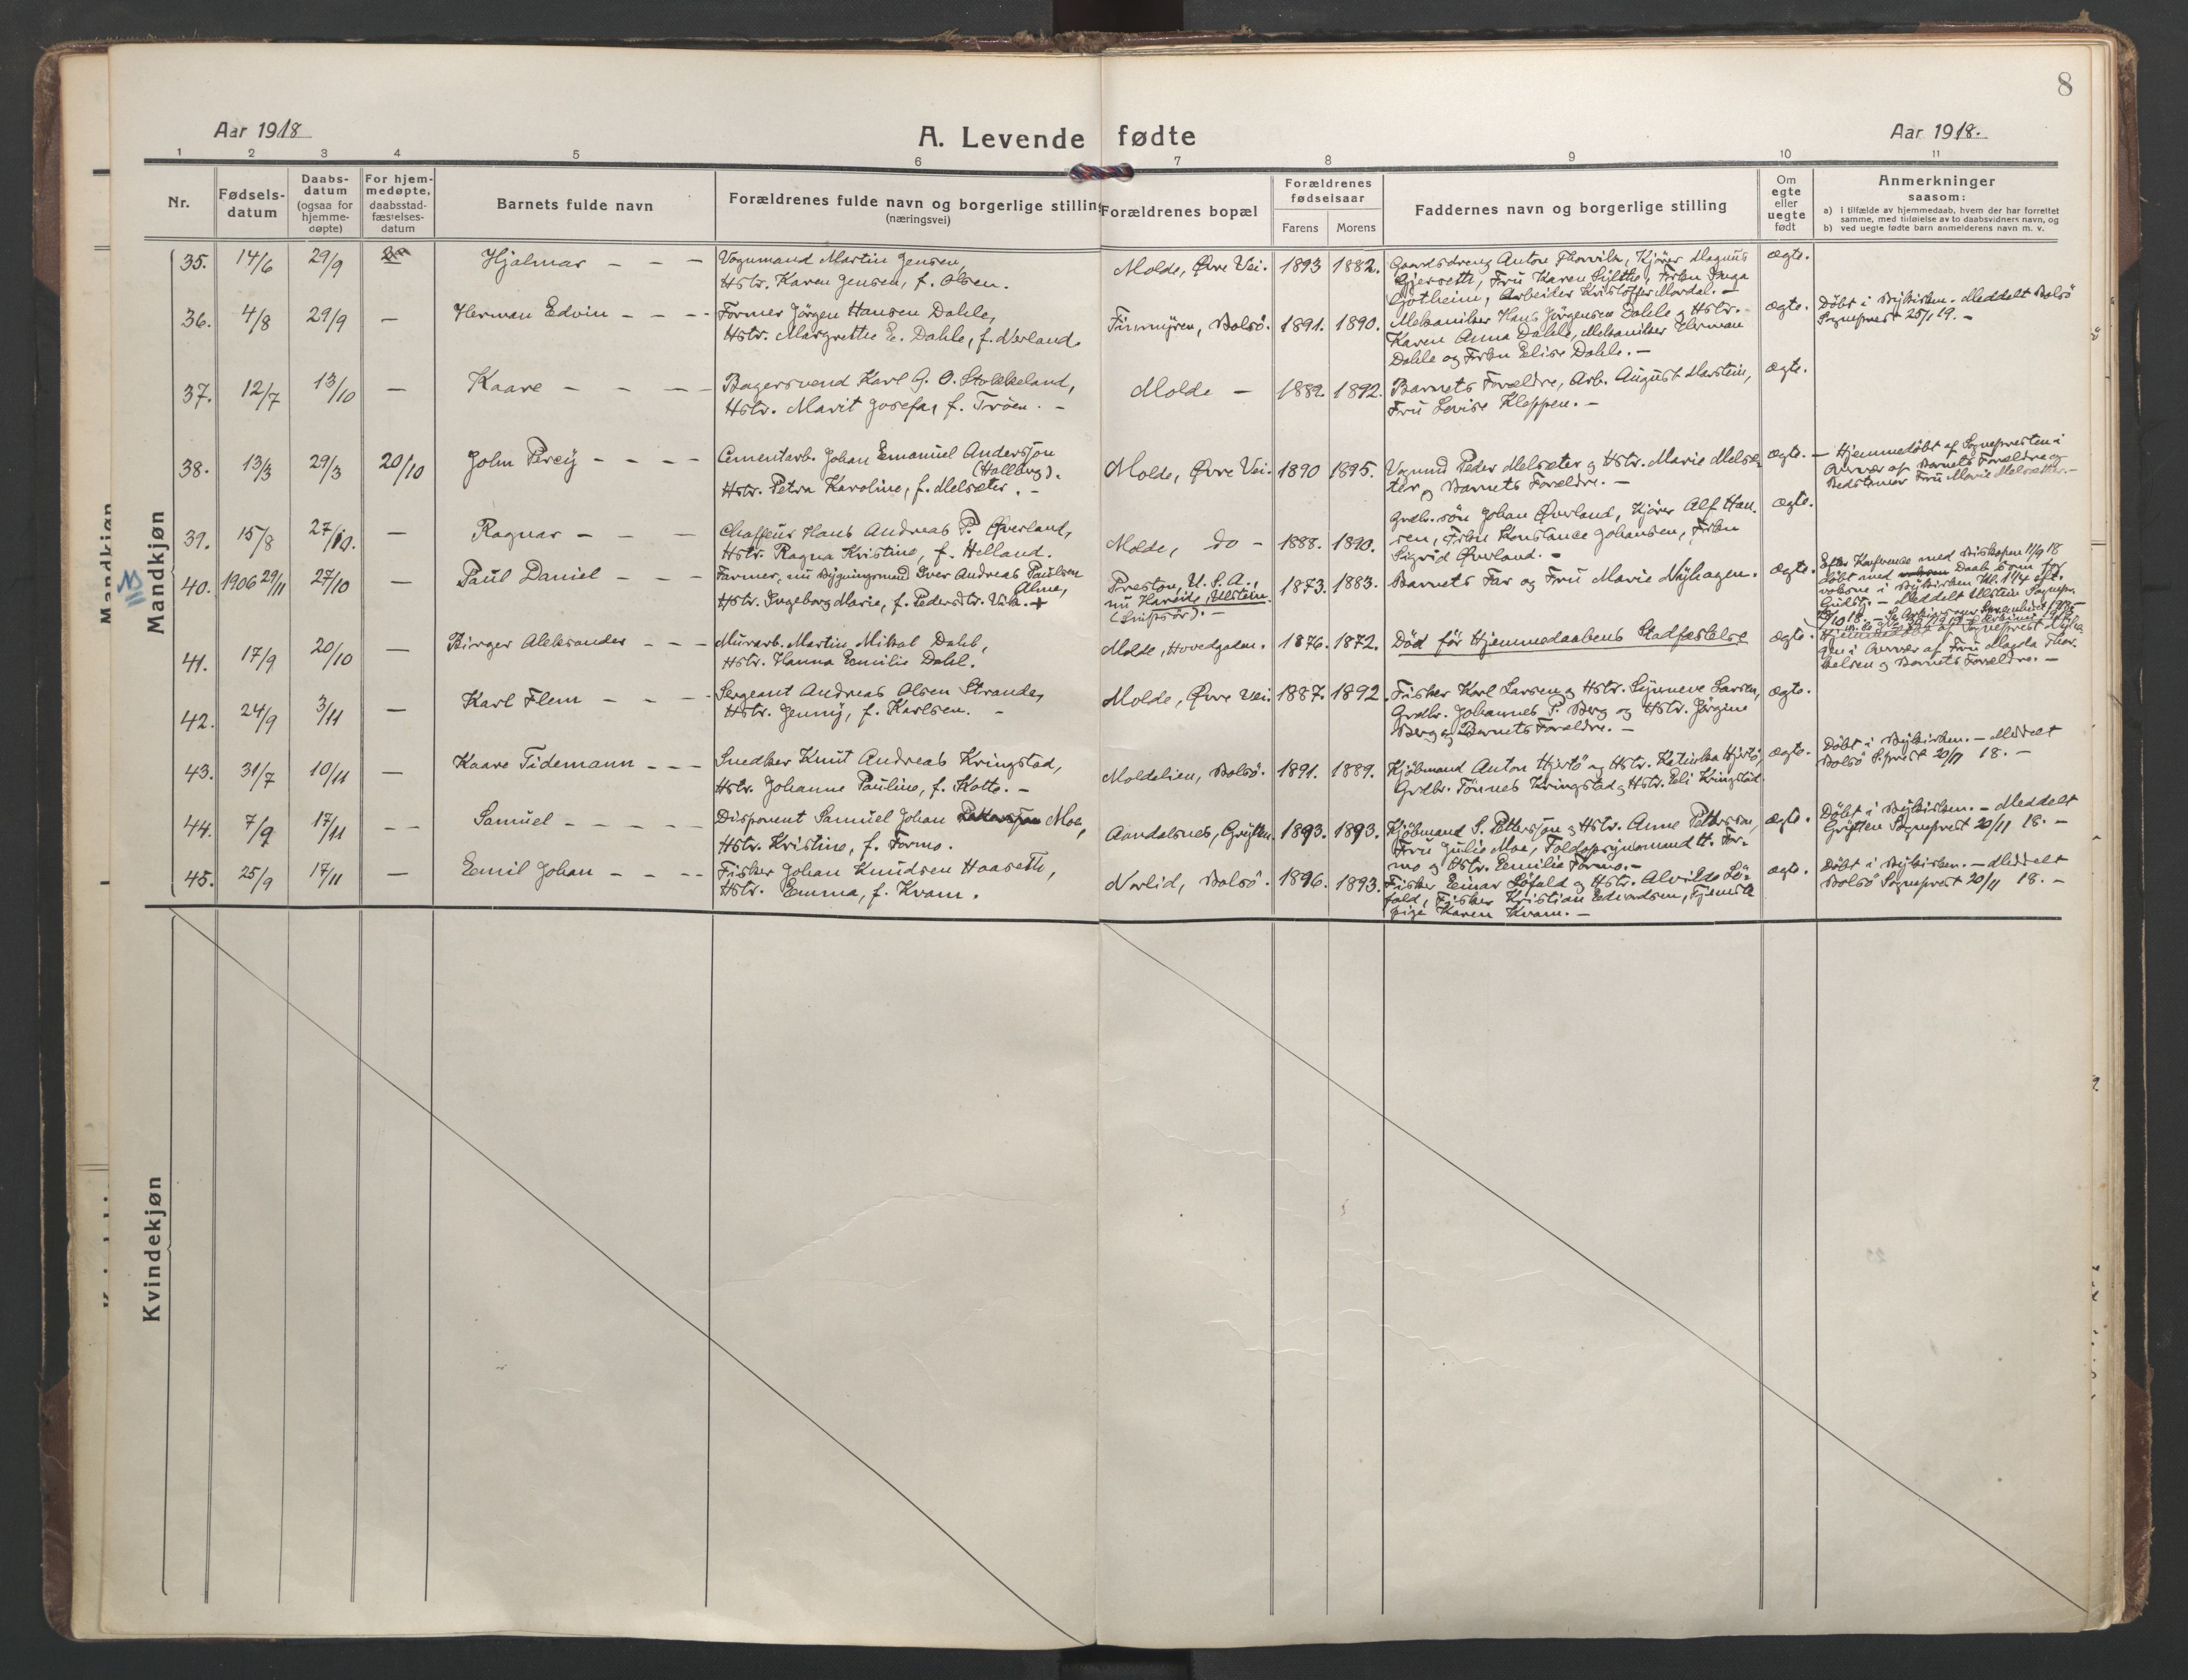 8
Aar 1918
A. Levende fødte
Aar 1918.
1 2 3 4 5 6 7 8 9 10 11
Nr.
Fødsels-
datum
Daabs-
datum
(ogsaa for
hjemme-
døpte)
For hjem-
medøpte,
daabsstad-
fæstelses-
datum
Barnets fulde navn
Forældrenes fulde navn og borgerlige stilling
(næringsvei)
Forældrenes bopæl
Forældrenes
fødselsaar
Farens
Morens
Faddernes navn og borgerlige stilling
Om
egte
eller
uegte
født
Anmerkninger
saasom:
a) I tilfælde av hjemmedaab, hvem der har forrettet
samme, med tilføielse av to daabsvidners navn, og
b) ved uegte fødte barn anmelderens navn m. v.
Mandkjøn
Mandkjøn
35. 14/6 29/9 Hjalmar - - -
Vognmand Martin Jensen,
Hstr. Karen Jensen, f. Olsen.
Molde, Øvre Vei. 1893 1882.
Gaardsdreng Anton Thorvik, Kjører Magnus
Gjerseth, Fru Karen Sylthe, Frkn Inga
Gotheim, Arbeider Kristoffer Mordal. -
ægte.
36. 4/8 29/9 - Herman Edvin - - -
Former Jörgen Hansen Dahle,
Hstr. Margrethe E. Dahle, f. Nerland.
Finmyren, Bolsö. 1891. 1890.
Mekaniker Hans Jörgensen Dahle og Hstr.
Karen Anna Dahle, Mekaniker Herman
Dahle og Frkn Elise Dahle. -
ægte.
Döbt i Bykirken. Meddelt Bolsö
Sogneprest 25/1 19. -
37. 12/7 13/10 - Kaare - - -
Bagersvend Karl G. O. Stokkeland,
Hstr. Marit Josefa, f. Tröen. -
Molde - 1882. 1892.
Barnets Forældre, Arb. August Marstein,
Fru Lovise Kleppen. -
ægte.
38. 13/3 29/3 20/10 John Percy - - - -
Cementarb. Johan Emanuel Andersson
(Hallberg).
Hstr. Petra Karoline, f. Melsæter. -
Molde, Øvre Vei. 1890 1895.
Vognmd Peder Melsæter og Hstr. Marie Melsæ-
ter og Barnets Forældre. -
ægte.
- Hjemmedöbt af Sognepresten i
Overvær af Barnets Forældre og
Bedstemor Fru Marie Melsæther. -
39. 15/8 27/10. - Ragnar - - -
Chaffeur Hans Andreas P. Øverland,
Hstr. Ragna Kristine, f. Helland.
Molde, do - 1888. 1890.
Grdbr.sön Johan Øverland, Kjører Alf Han-
sen, Frkn Konstance Johansen, Frkn
Sigrid Øverland. -
ægte.
40. 1906 29/11 27/10 - Paul Daniel - - -
Farmer, nu Bygningsmand Iver Andreas Paulsen
Alme,
Hstr. Ingeborg Marie, f. Pedersdtr. Vik. +
Preston, U. S. A.,
nu Hareide, Ulstein.
1873. 1883.
Barnets Far og Fru Marie Nyhagen.
ægte.
Efter Konferense med Biskopen 11/9 18
döbt med Daab som for
voksne i Bykirken Kl. 1 1/4 eft.
Gudstj. - Meddelt Ulstein Sognepr.
41. 17/9 20/10 - Birger Aleksander - - -
Murarb. Martin Mikal Dahl,
Hstr. Hanna Emilie Dahl.
Molde, Hovedgaden. 1876. 1872.
Död før Hjemmedaabens Stadfæstelse
ægte.
Hjemmedöbt af Sogneprest
gen i Overvær af Fru Magda Thor-
kelsen og Barnets Forældre. -
42. 24/9 3/11 - Karl Flem - - -
Sergeant Andreas Olsen Strande,
Hstr. Jenny, f. Karlsen. -
Molde, Øvre Vei. 1887. 1892.
Fisker Karl Larsen og Hstr. Synneve Larsen,
Grdbr. Johannes P. Berg og Hstr. Jörgine
Berg og Barnets Forældre. -
ægte.
43. 31/7 10/11 - Kaare Tidemann - - -
Snedker Knut Andreas Kringstad,
Hstr. Johanne Pauline, f. Kotte. -
Moldelien, Bolsö. 1891. 1889.
Kjöbmand Anton Hjertö og Hstr. Katinka Hjertö,
Grdbr. Tönnes Kringstad og Hstr. Eli Kringstad.
ægte.
Döbt i Bykirken. - Meddelt
Bolsö S.prest 20/11 18. -
44. 7/9 17/11 - - Samuel - - - - -
Disponent Samuel Johan Pettersson Moe,
Hstr. Kristine, f. Formo.
Aandalsnes, Grytten. 1893. 1893.
Kjöbmand S. Pettersson og Hstr. Anne Pettersson,
Fru Julie Moe, Toldopsynsmand H. For-
mo og Hstr. Emilie Formo. -
ægte.
Döbt i Bykirken. - Meddelt
Grytten Sogneprest 20/11 18. -
45. 25/9 17/11 - Emil Johan - - - -
Fisker Johan Knudsen Haaseth,
Hstr. Emma, f. Kvam.
Norlid, Bolsö. 1896. 1893.
Fisker Einar Löfald og Hstr. Alvilde Lö-
fald, Fisker Kristian Edvardsen, Tjeneste
pige Karen Kvam. -
ægte.
Döbt i Bykirken. - Meddelt
Bolsö Sogneprest 20/11 18. -
Kvindekjøn